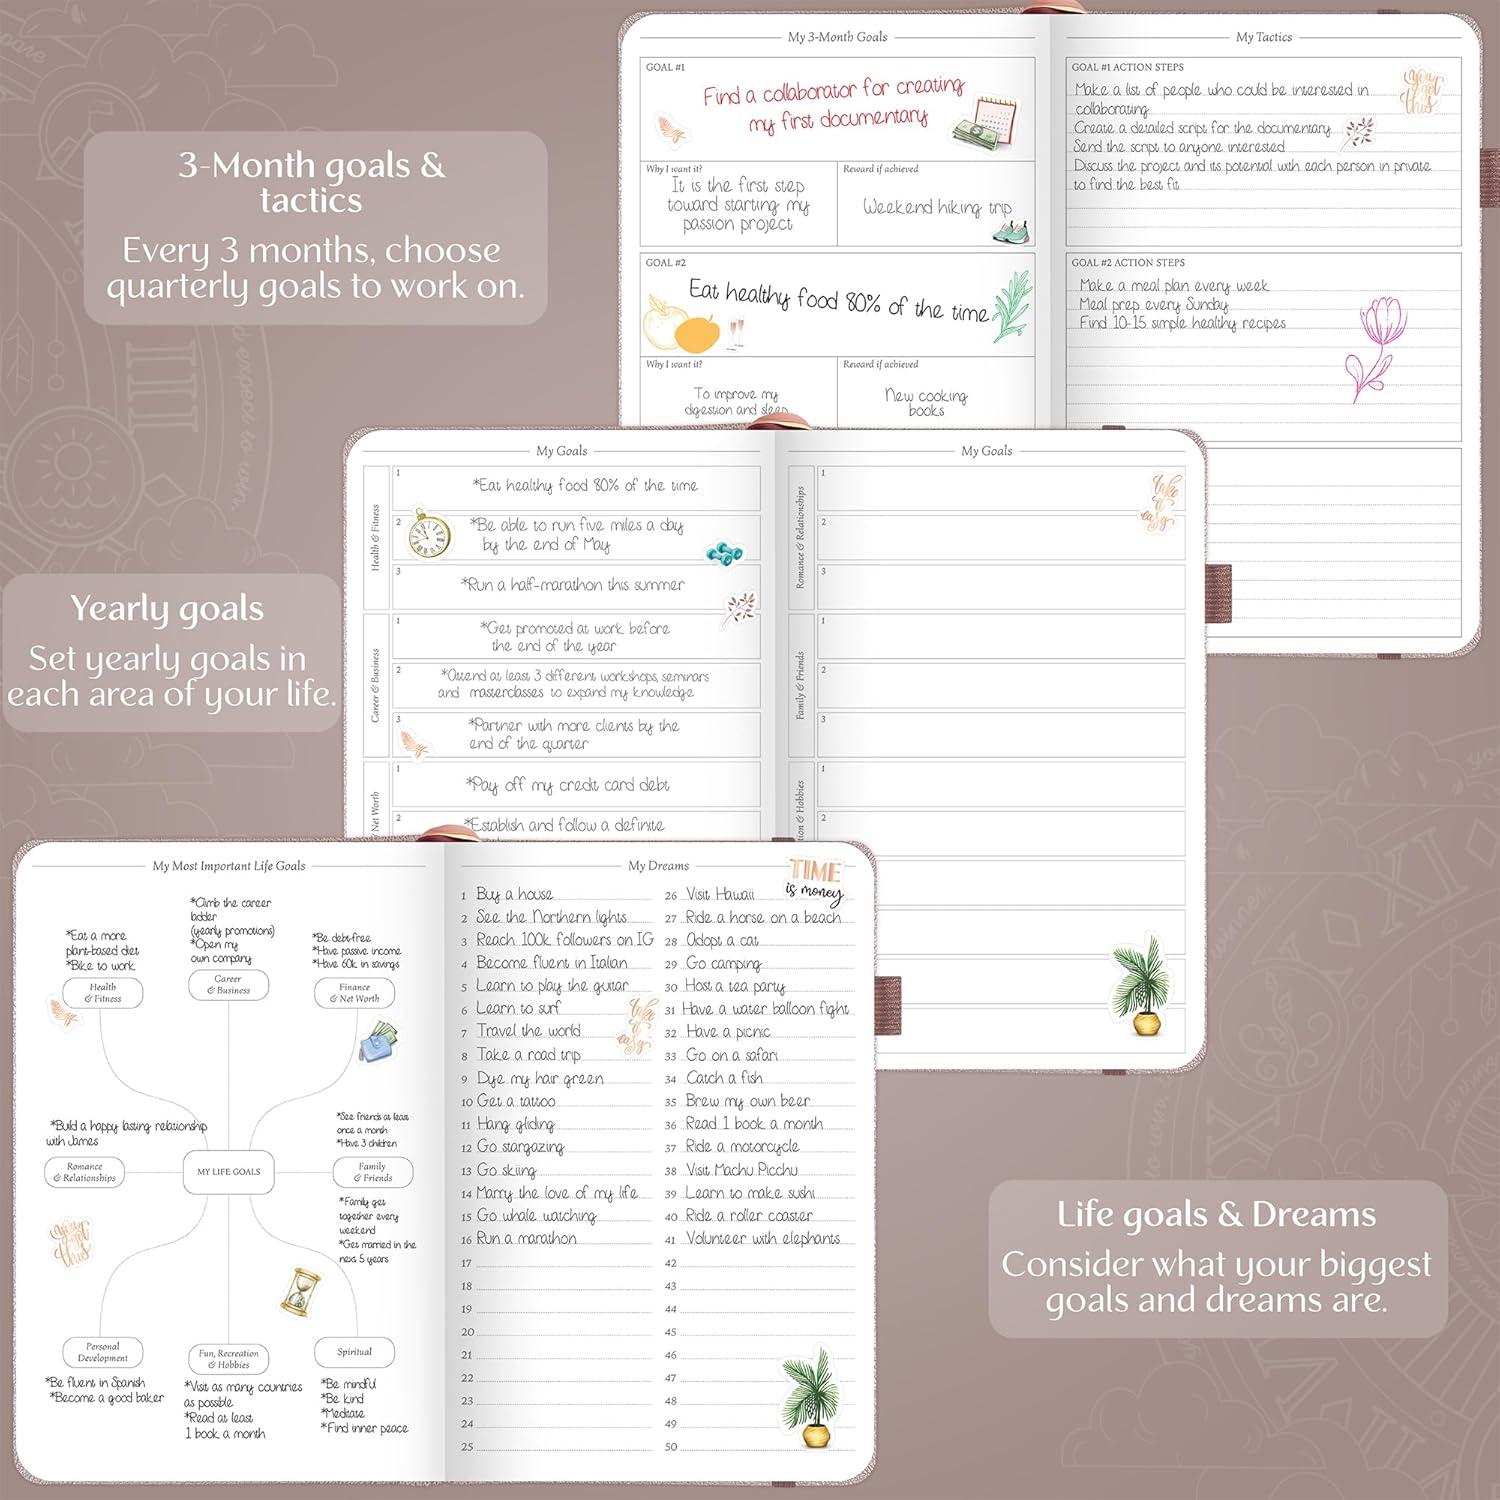 3-Month goals &
tactics
Every 3 months, choose
quarterly goals to work on.
My 3-Month Goals
GOAL #1
Find a collaborator for creating
my first documentary
Why I want it?
It is the first step
toward starting my
passion project
Reward if achieved
Weekend hiking trip
GOAL #2
Eat healthy food 80% of the time
Why I want it?
To improve my
digestion and sleep
Reward if achieved
New cooking
books
My Tactics
GOAL #1 ACTION STEPS
you
got
this
Make a list of people who could be interested in
collaborating
Create a detailed script for the documentary
Send the script to anyone interested
Discuss the project and its potential with each person in private
to find the best fit
GOAL #2 ACTION STEPS
Make a meal plan every week
Meal prep every Sunday
Find 10-15 simple healthy recipes
Yearly goals
Set yearly goals in
each area of your life.
My Goals
Health & Fitness
1
*Eat healthy food 80% of the time
2
*Be able to run five miles a day
by the end of May
3
*Run a half-marathon this summer
Career & Business
1
*Get promoted at work before
the end of the year
2
*Attend at least 3 different workshops, seminars
and masterclasses to expand my knowledge
3
*Partner with more clients by the
end of the quarter
Net Worth
1
*Pay off my credit card debt
2
*Establish and follow a definite
My Goals
take
it
easy
Romance & Relationships
1
2
3
Family & Friends
1
2
3
& Hobbies
1
2
My Most Important Life Goals
*Eat a more
plant-based diet
*Bike to work
Health
& Fitness
*Climb the career
ladder
(yearly promotions)
*Open my
own company
Career
& Business
*Be debt-free
*Have passive income
*Have 60k in savings
Finance
& Net Worth
*Build a happy lasting relationship
with James
Romance
& Relationships
MY LIFE GOALS
*See friends at least
once a month
*Have 3 children
Family
& Friends
*Family get
together every
weekend
*Get married in the
next 5 years
you
got
this
Personal
Development
*Be fluent in Spanish
*Become a good baker
Fun, Recreation
& Hobbies
*Visit as many countries
as possible
*Read at least
1 book a month
Spiritual
*Be mindful
*Be kind
*Meditate
*Find inner peace
My Dreams
TIME
is money
1 Buy a house
2 See the Northern lights
3 Reach 100k followers on IG
4 Become fluent in Italian
5 Learn to play the guitar
6 Learn to surf
7 Travel the world
8 Take a road trip
9 Dye my hair green
10 Get a tattoo
11 Hang gliding
12 Go stargazing
13 Go skiing
14 Marry the love of my life
15 Go whale watching
16 Run a marathon
17
18
19
20
21
22
23
24
25
take
it
easy
26 Visit Hawaii
27 Ride a horse on a beach
28 Adopt a cat
29 Go camping
30 Host a tea party
31 Have a water balloon fight
32 Have a picnic
33 Go on a safari
34 Catch a fish
35 Brew my own beer
36 Read 1 book a month
37 Ride a motorcycle
38 Visit Machu Picchu
39 Learn to make sushi
40 Ride a roller coaster
41 Volunteer with elephants
42
43
44
45
46
47
48
49
50
Life goals & Dreams
Consider what your biggest
goals and dreams are.